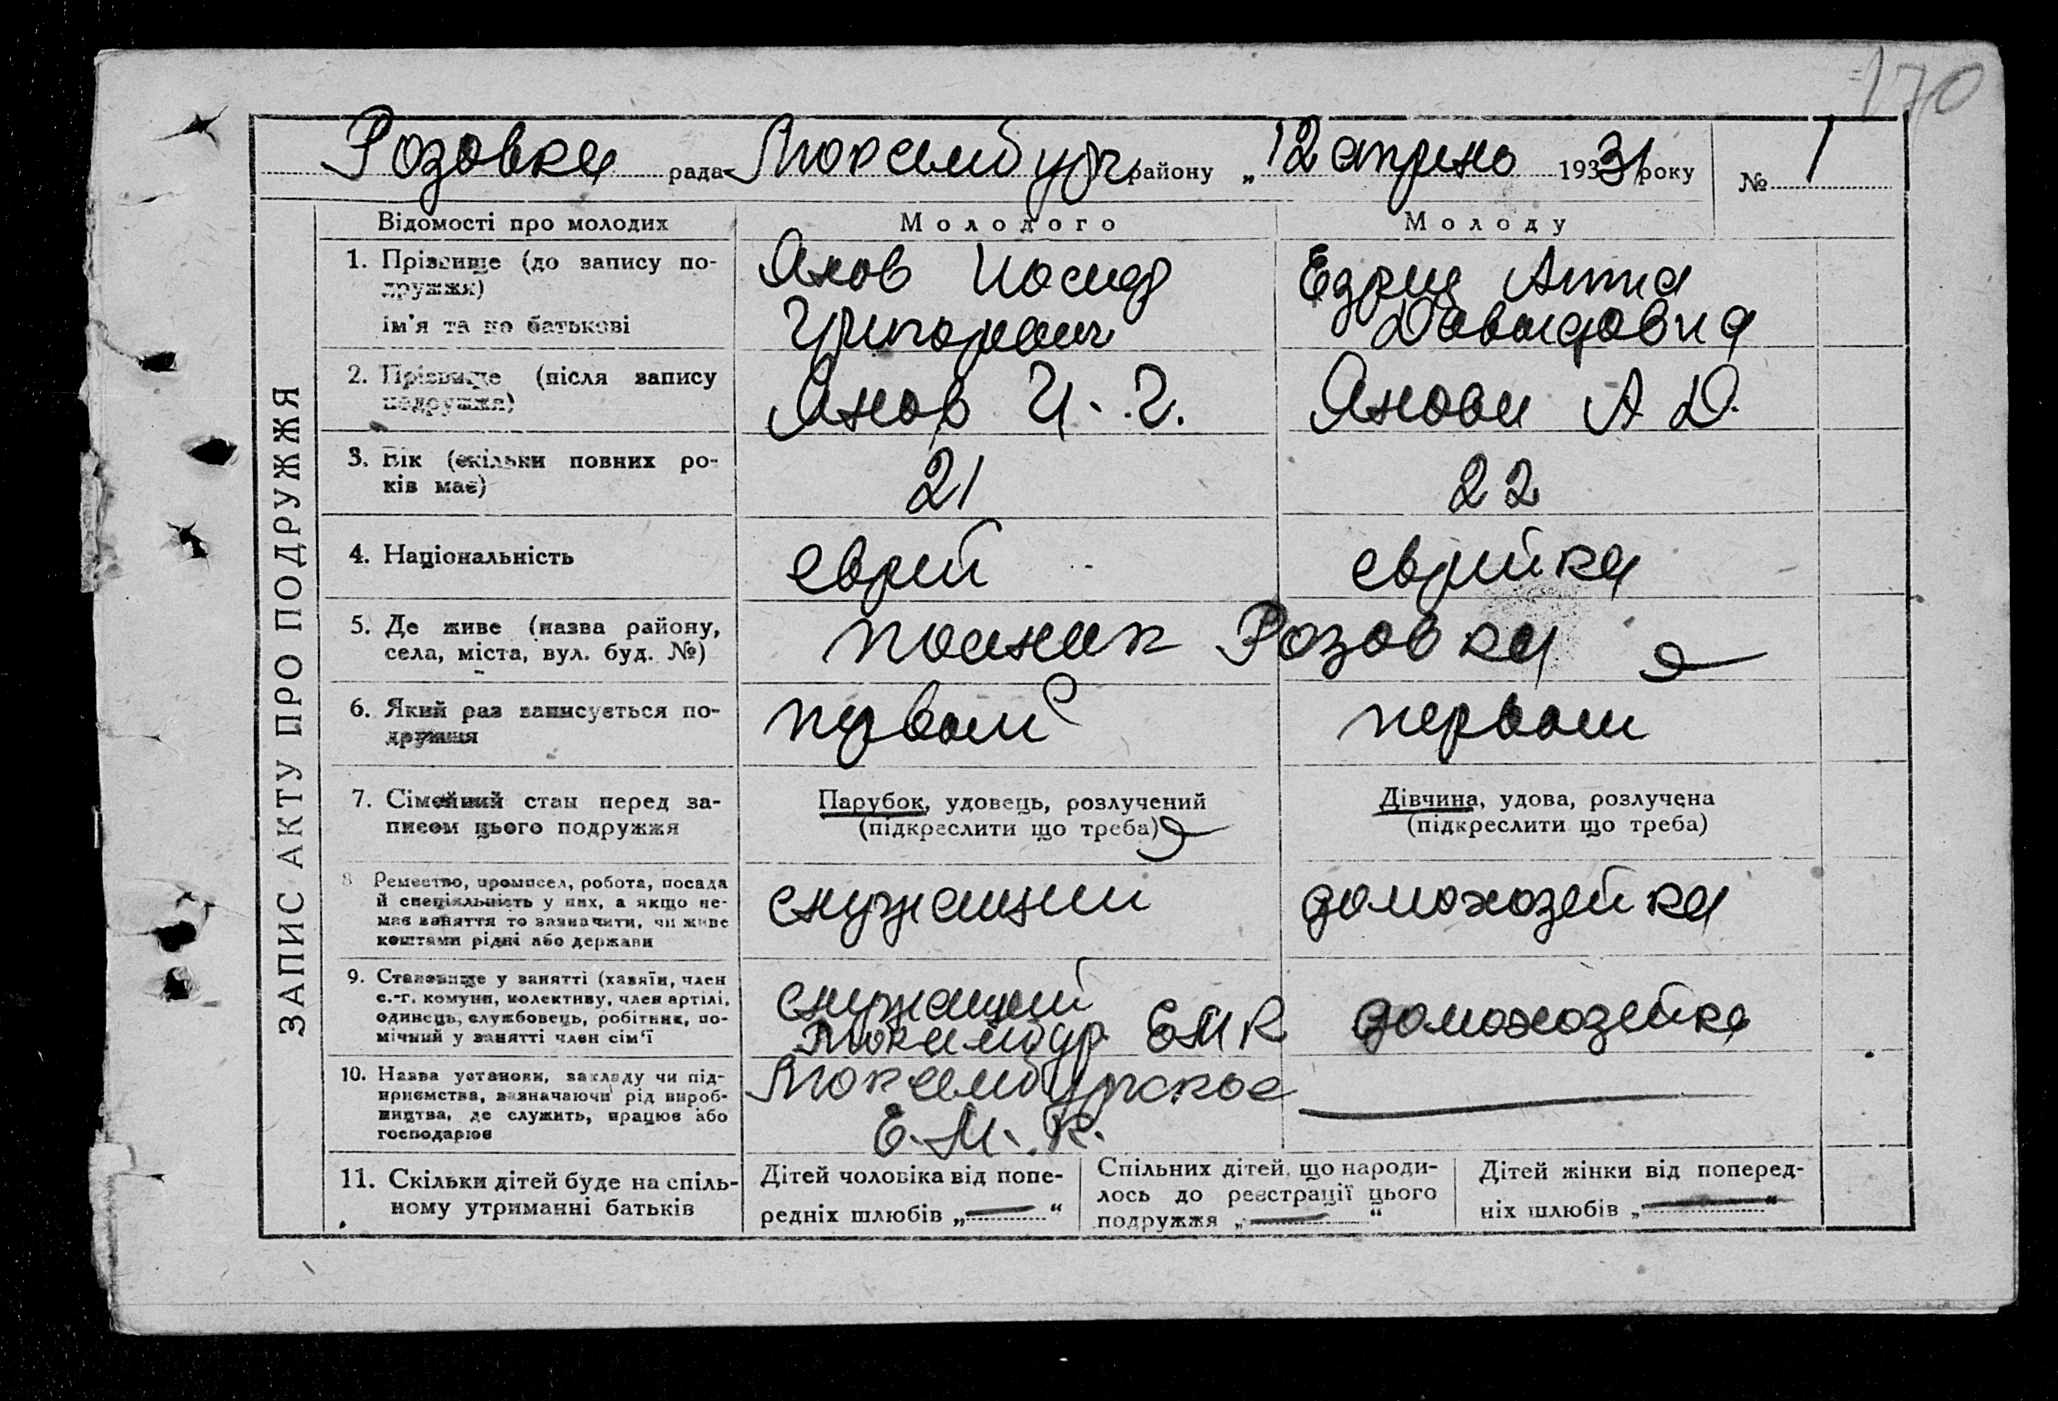 170
Розовка рада Люксембург району „12 апреля 1933 року № 1
ЗАПИС АКТУ ПРО ПОДРУЖЖЯ
Відомості про молодих Молодого Молоду
1. Прізвище (до запису по-
дружжя)
ім'я та по батькові
Янов Иосиф
Григорьевич
Анна
Давидовна
2. Прізвище (після запису
подружжя)
Янов И. Г.
Янова А Д.
3. Вік (скільки повних ро-
ків має)
21
22
4. Національність
еврей
еврейка
5. Де живе (назва району,
села, міста, вул. буд. №)
Розовка
6. Який раз записується по-
дружжя
первый
первый
7. Сімейний стан перед за-
писом цього подружжя
Парубок, удовець, розлучений
(підкреслити що треба)
Дівчина, удова, розлучена
(підкреслити що треба)
8 Ремество, промисел, робота, посада
й спеціяльність у них, а якщо не-
має заняття то зазначити, чи живе
коштами рідні або держави
служащий
домохозейка
9. Становище у занятті (хазяїн, член
с.-г. комуни, колективу, член артілі,
одинець, службовець, робітник, по-
мічний у занятті член сім'ї
служащий
Люксембур ЕМК
домохозейка
10. Назва установи, закладу чи під-
приємства, зазначаючи рід вироб-
ництва, де служить, працює або
господарює
Люксембургское
Е. М. К.
11. Скільки дітей буде на спіль-
ному утриманні батьків
Дітей чоловіка від попе-
редніх шлюбів „ — “
Спільних дітей, що народи-
лось до реєстрації цього
подружжя „ — “
Дітей жінки від поперед-
ніх шлюбів „ — “